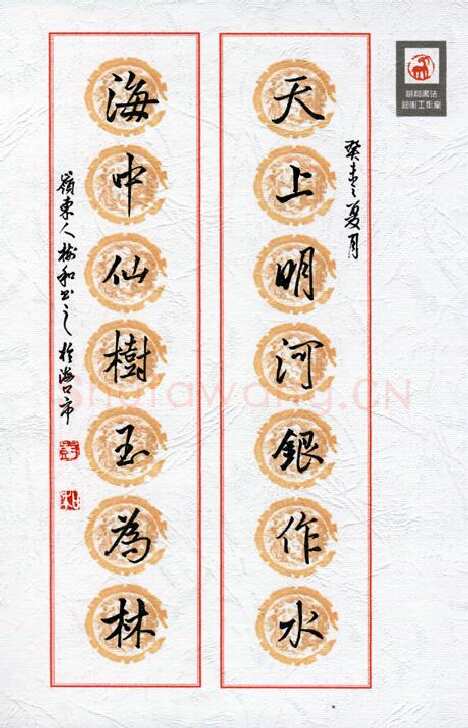 癸未之夏月
天上明河銀作水
海中仙樹玉為林
嶺東人樹和書之於海口市
書法
藝術工作室
Shufawang.CN